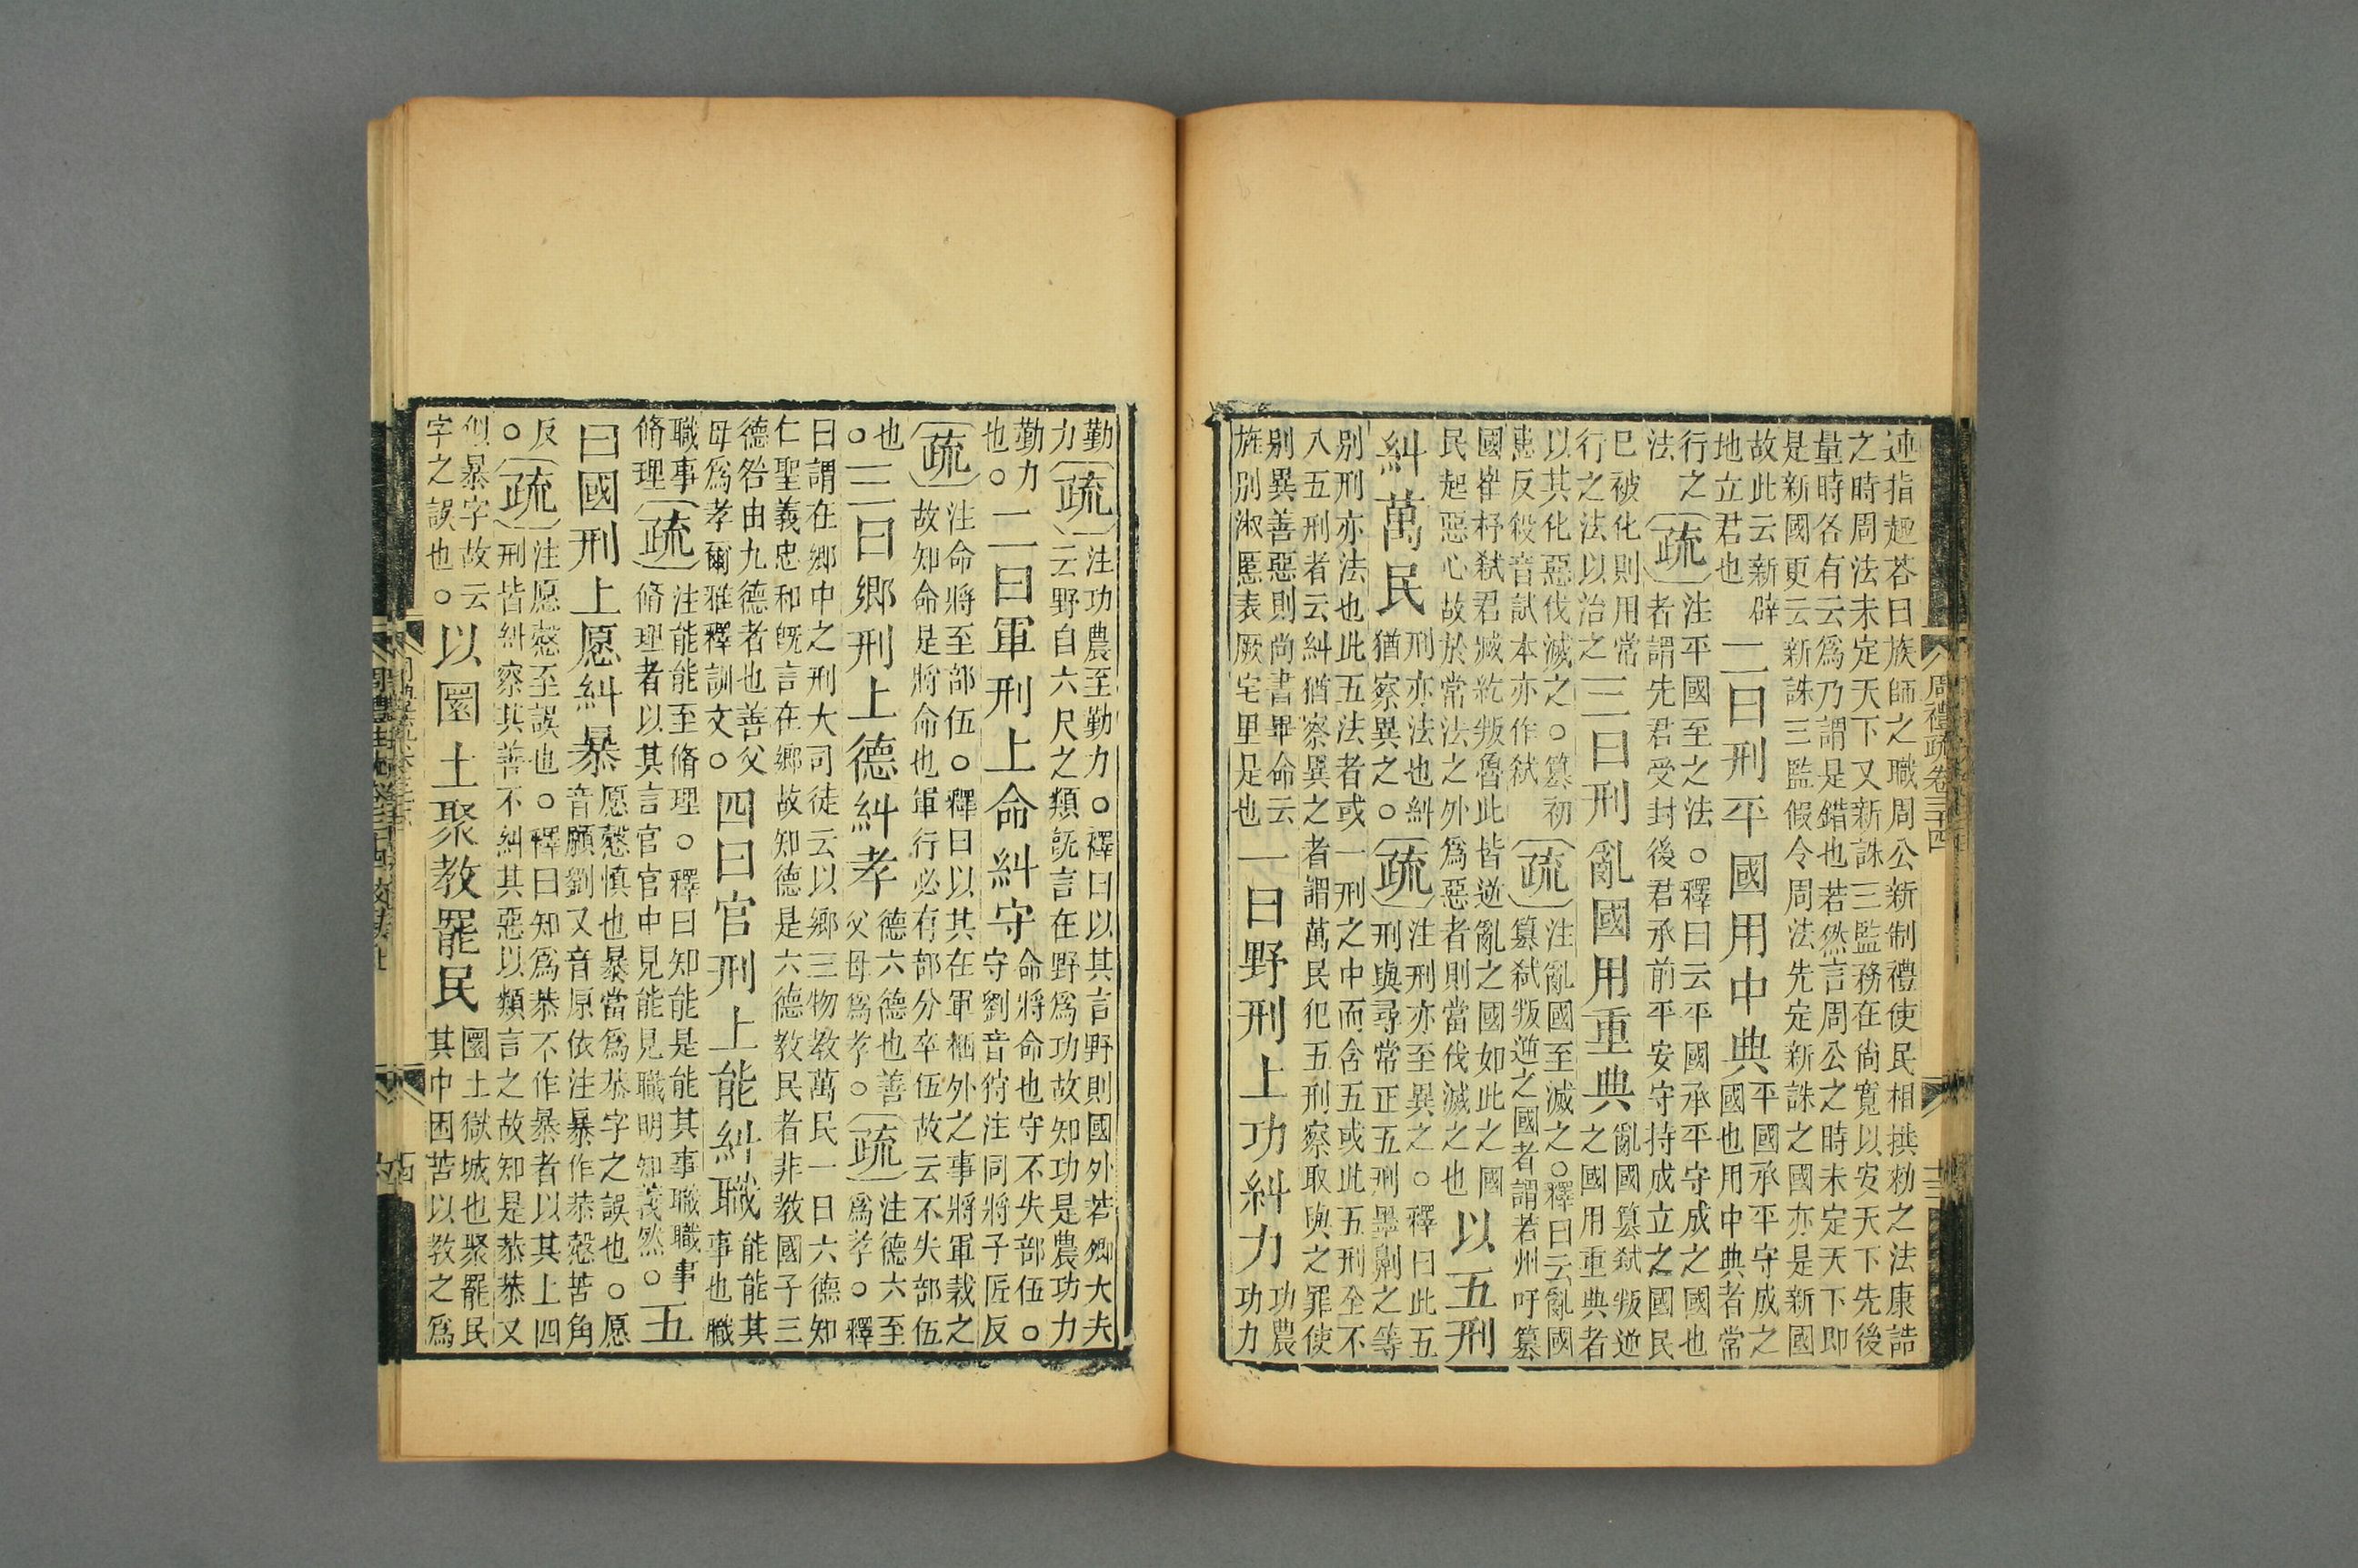 連指趣荅曰族師之職周公新制禮使民相拱勑之法康誥
之時周法未定天下又新誅三監務在尚寬以安天下先後
量時各有云爲乃謂是錯也若然言周公之時未定天下即
是新國更云新誅三監假令周法先定新誅之國亦是新國
故此云新辟
地立君也
二曰刑平國用中典
平國承平守成之
國也用中典者常
行之
法
疏
注平國至之法○釋曰云平國承平守成之國也
者謂先君受封後君承前平安守持成立之國民
已被化則用常
行之法以治之
三曰刑亂國用重典
亂國篡弑叛逆
之國用重典者
以其化惡伐滅之○篡初
恵反殺音試本亦作弑
疏
注亂國至滅之○釋曰云亂國
篡弑叛逆之國者謂若州吁篡
國崔杼弑君臧紇叛魯此皆逆亂之國如此之國
民起惡心故於常法之外爲惡者則當伐滅之也
以五刑
糾萬民
刑亦法也糾
猶察異之○
疏
注刑亦至異之○釋曰此五
刑與尋常正五刑墨劓之等
別刑亦法也此五法者或一刑之中而含五或此五刑全不
入五刑者云糾猶察異之者謂萬民犯五刑察取與之罪使
別異善惡則尚書畢命云
旌別淑慝表厥宅里是也
一曰野刑上功糾力
功農
功力
周禮疏卷三十四
十三
勤
力
疏
注功農至勤力○釋曰以其言野則國外若鄉大夫
云野自六尺之類旣言在野爲功故知功是農功力
勤力
也○
二曰軍刑上命糾守
命將命也守不失部伍○
守劉音狩注同將子匠反
疏
注命將至部伍○釋曰以其在軍梱外之事將軍裁之
故知命是將命也軍行必有部分卒伍故云不失部伍
也
○
三曰鄉刑上德糾孝
德六德也善
父母爲孝○
疏
注德六至
爲孝○釋
曰謂在鄉中之刑大司徒云以鄉三物教萬民一曰六德知
仁聖義忠和旣言在鄉故知德是六德教民者非教國子三
德咎由九德者也善父
母爲孝爾雅釋訓文○
四曰官刑上能糾職
能能其
事也職
職事
脩理
疏
注能能至脩理○釋曰知能是能其事職職事
脩理者以其言官官中見能見職明知義然○
五
曰國刑上愿糾暴
愿愨慎也暴當爲恭字之誤也○愿
音願劉又音原依注暴作恭愨苦角
反
○
疏
注愿愨至誤也○釋曰知爲恭不作暴者以其上四
刑皆糾察其善不糾其惡以類言之故知是恭恭又
似暴字故云
字之誤也○
以圜土聚教罷民
圜土獄城也聚罷民
其中困苦以教之爲